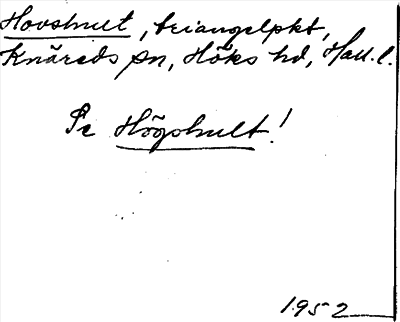 Hovshult, triangelpkt,
Knäreds sn, Höks hd, Hall. l.
Se Högshult!
1952